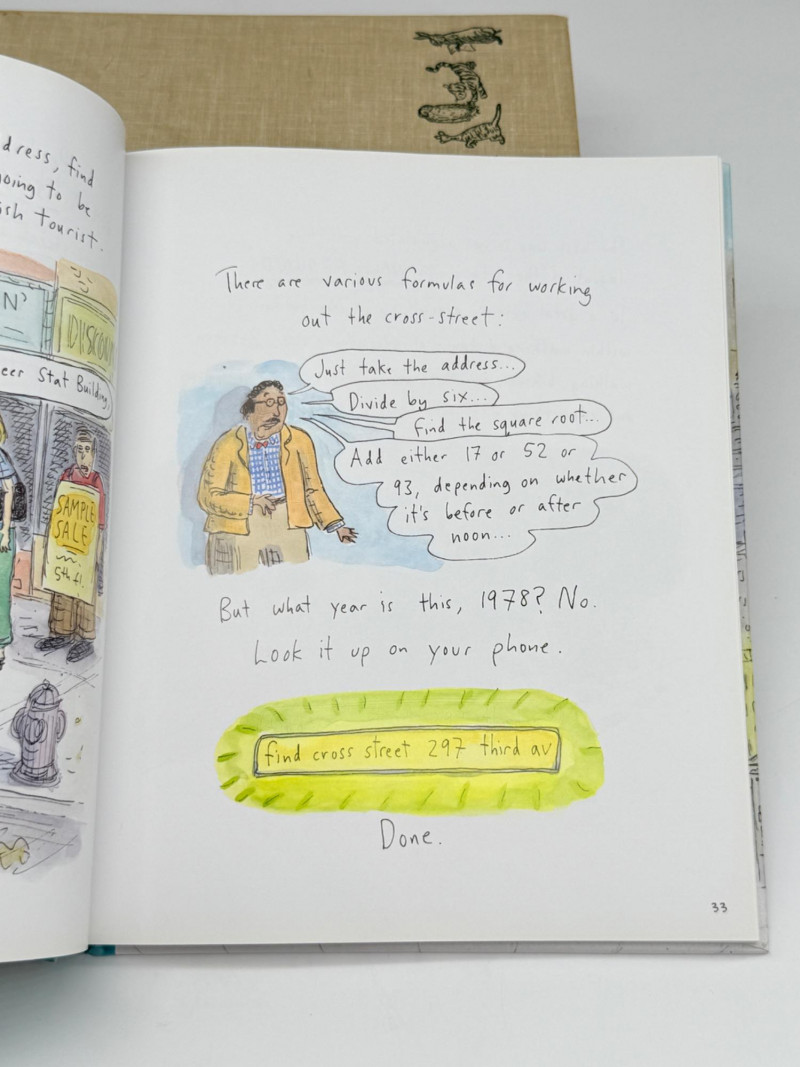 dress, find
going to be
tourist.
N'
DISKON
Stat Building
SAMPLE
SALE
5th fl.
There are various formulas for working
out the cross-street:
Just take the address...
Divide by six...
Find the square root...
Add either 17 or 52 or
93, depending on whether
it's before or after
noon...
But what year is this, 1978? No.
Look it up on your phone.
find cross street 297 third av
Done.
33